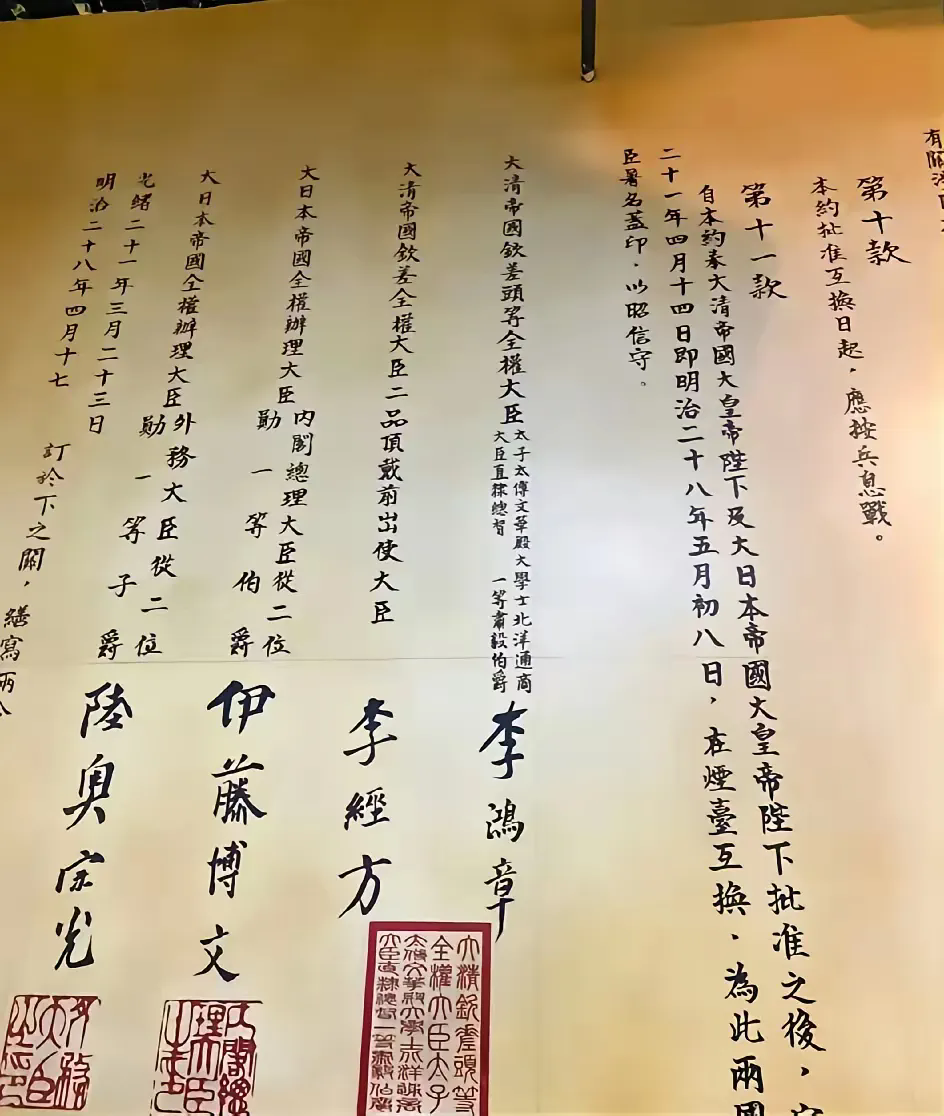 第十款
本約批准互換日起，應按兵息戰。
第十一款
自本約奉大清帝國大皇帝陛下及大日本帝國大皇帝陛下批准之後，
二十一年四月十四日即明治二十八年五月初八日，在煙臺互換．為此兩國
臣署名蓋印．以昭信守。
大清帝國欽差頭等全權大臣
太子太傅文華殿大學士北洋通商
大臣直隸總督 一等肅毅伯爵
李鴻章
大清欽差頭等
全權大臣太子
太傅文華殿大學士北洋通商
大臣直隸總督一等肅毅伯爵
大清帝國欽差全權大臣二品頂戴前出使大臣
李經方
大日本帝國全權辦理大臣
內閣總理大臣從二位
勛一等伯爵
伊藤博文
內閣總
理大臣
之印
大日本帝國全權辦理大臣
外務大臣從二位
勛一等子爵
陸奧宗光
外務
大臣
之印
光緒二十一年三月二十三日
明治二十八年四月十七
訂於下之關，繕寫兩